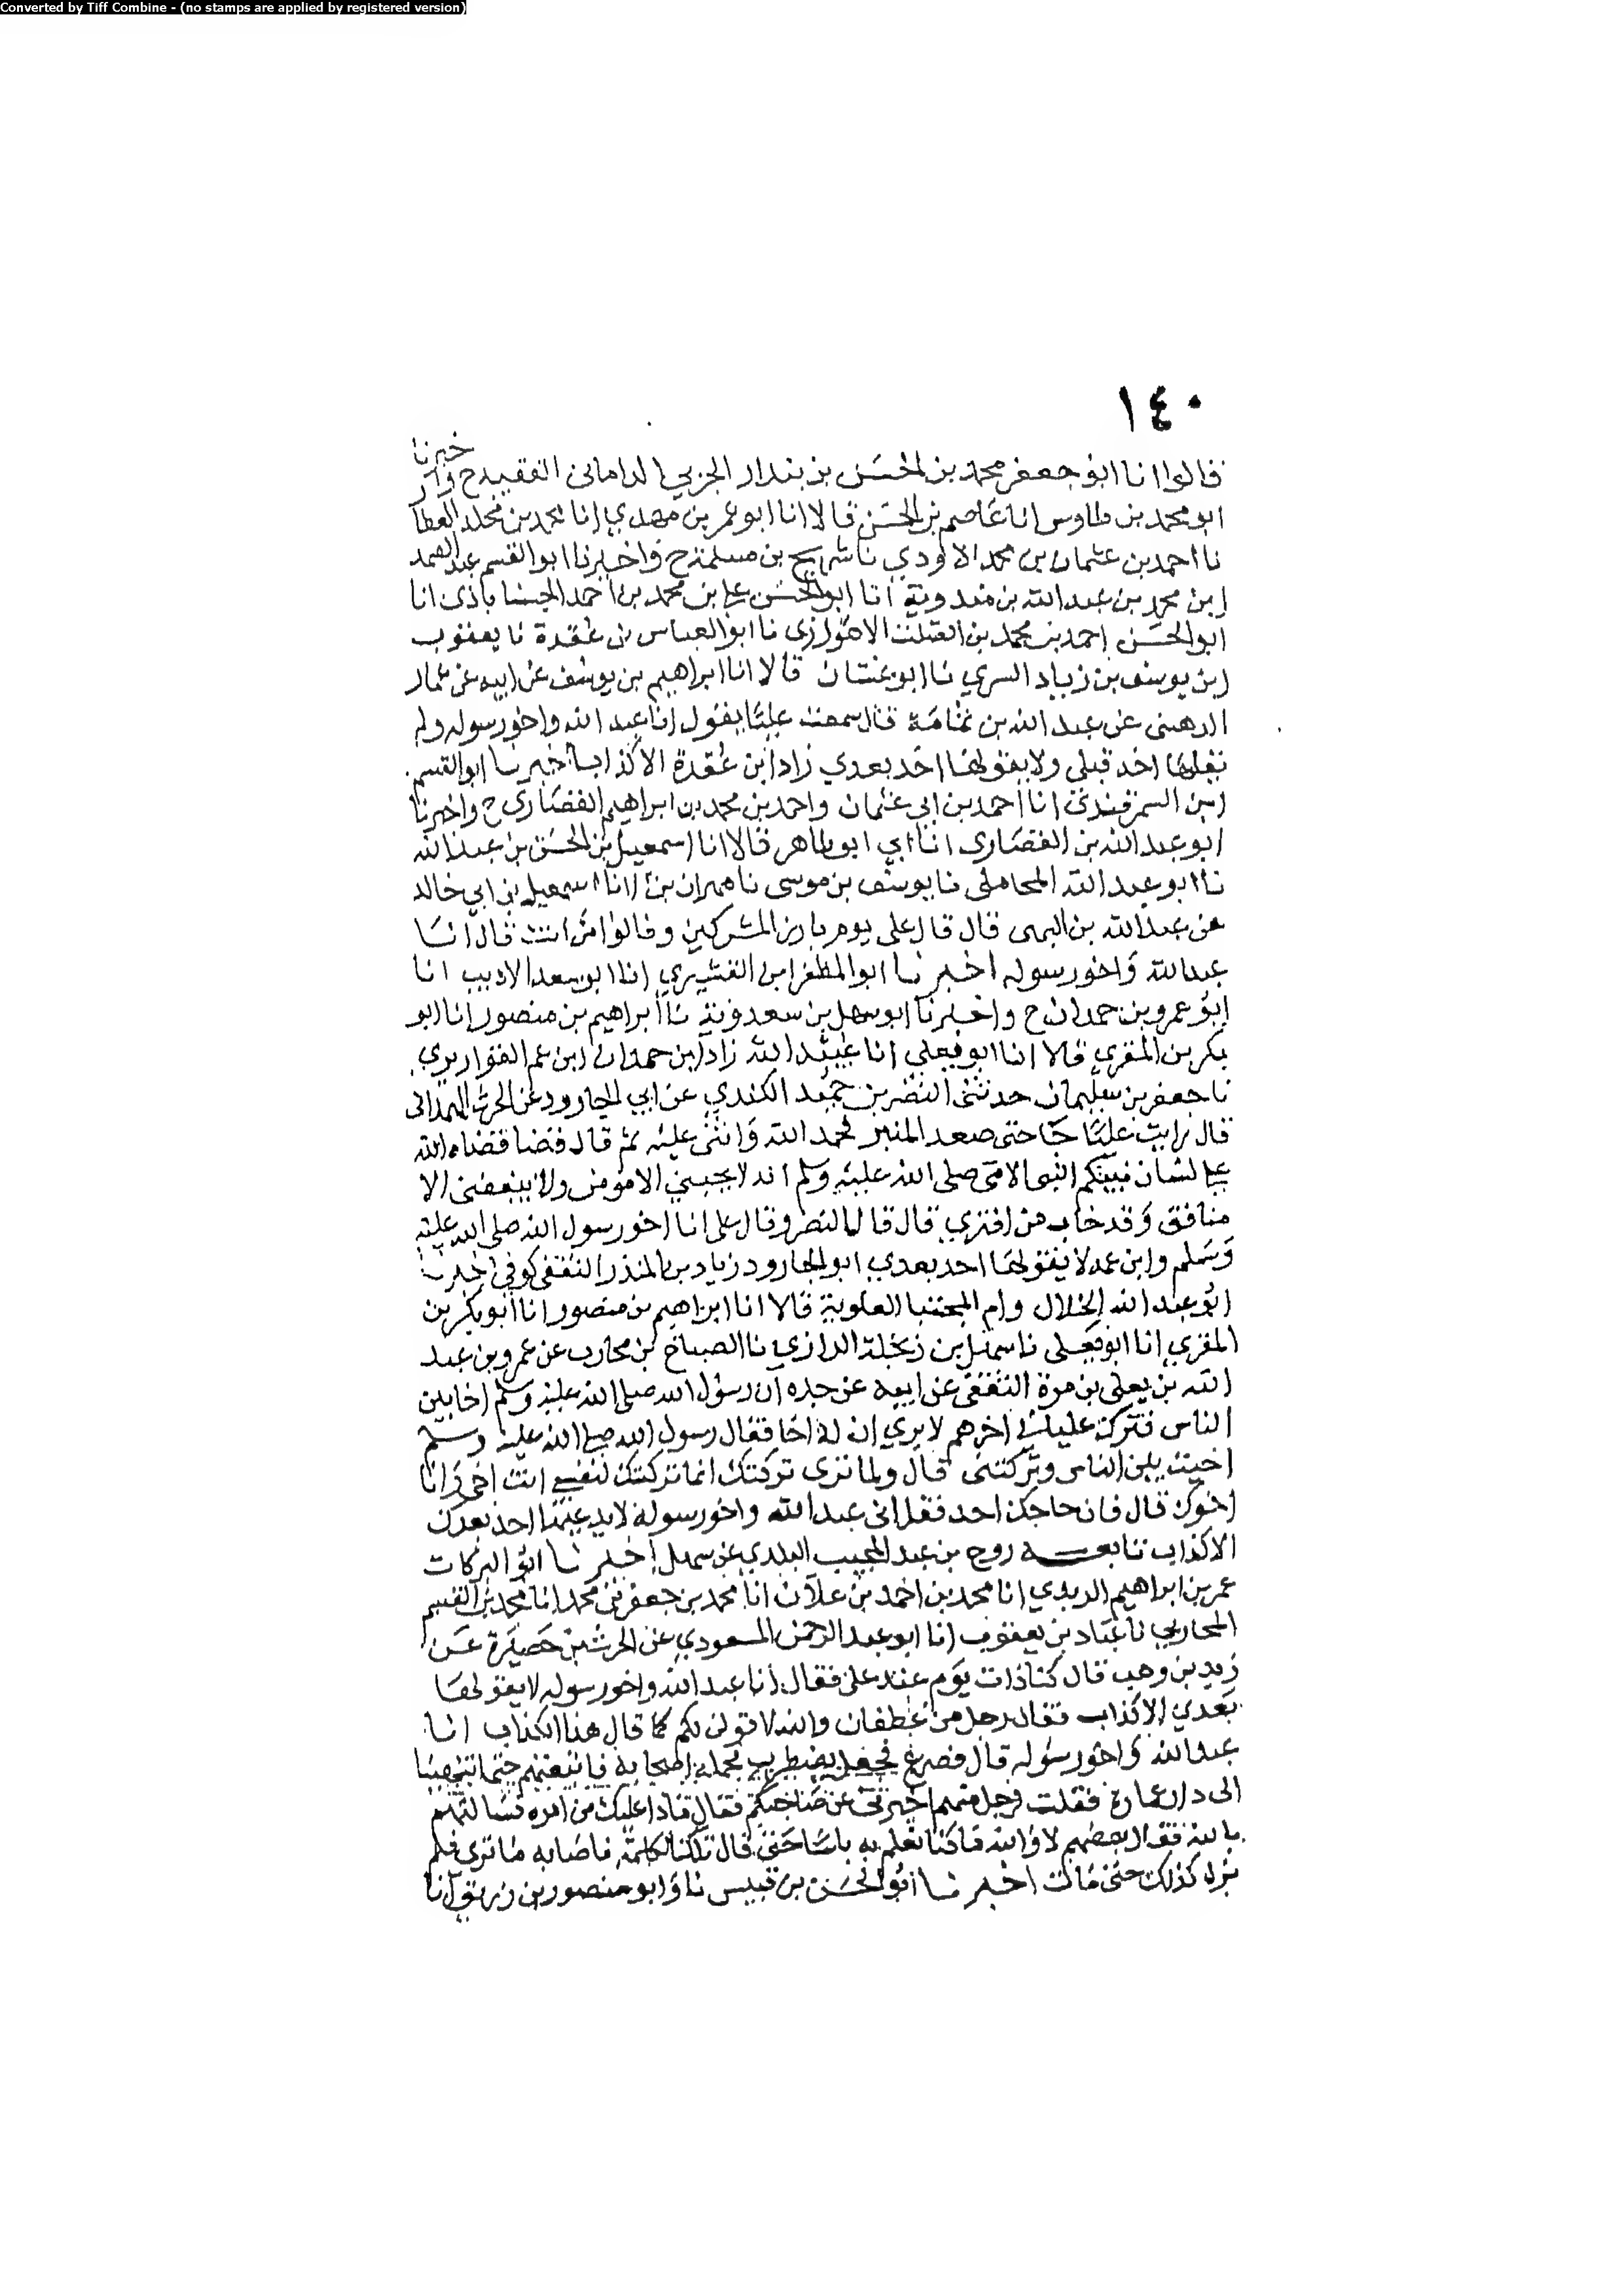 Converted by Tiff Combine - (no stamps are applied by registered version)
١٤٠
قالوا انا ابو جعفر محمد بن الحسن بن بندار الدامغانى الفقيه ح واخبرنا
ابو محمد بن طاوس انا عاصم بن الحسن قالا انا ابو عمر بن مهدي انا محمد بن مخلد العطا
نا احمد بن عثمان بن محمد الاودي نا شريح بن مسلمة ح واخبرنا ابو القسم عبد الصمد
ابن محمد بن عبد الله بن مندوية انا ابو الحسن علي بن محمد بن احمد انا
ابو الحسن احمد بن محمد بن الصلت الاهوازى نا ابو العباس بن عقدة نا يعقوب
ابن يوسف بن زياد نا ابو غسان قالا انا ابراهيم بن يوسف عن ابيه عن عمار
الدهنى عن عبد الله بن ثمامة قال سمعت عليا يقول انا عبد الله واخو رسوله ولم
يقلها احد قبلي ولا يقولها احد بعدي زاد ابن عقدة الا كذاب اخبرنا ابو القسم
ابن السمرقندى انا احمد بن ابي عثمان واحمد بن محمد بن ابراهيم القصارى ح واخبرنا
ابو عبد الله بن القصارى انا ابي ابو طاهر قالا انا اسمعيل بن الحسن بن عبد الله
نا ابو عبد الله المحاملى نا يوسف بن موسى نا مهران بن انا اسمعيل بن ابي خالد
عن عبد الله بن البهى قال قال على يوم بارز المشركين وقالوا من انت قال انا
عبد الله واخو رسوله اخبرنا ابو المظفر ابن القشيري انا ابو سعد الاديب انا
ابو عمرو بن حمدان ح واخبرنا ابو سهل بن سعدوية نا ابراهيم بن منصور انا ابو
بكر بن المقري قالا انا ابو يعلي انا عبيد الله زاد ابن حمدان ابن عم القواريري
نا جعفر بن سليمان حدثنى النضر بن حميد الكندي عن ابي الجارود عن الحرث الهمدانى
قال رايت عليا جا حتى صعد المنبر فحمد الله واثنى عليه ثم قال قضا قضاه الله
على لسان نبيكم النبى الامى صلى الله عليه وسلم انه لا يحبني الا مومن ولا يبغضنى الا
منافق وقد خاب من افترى قال قال النضر وقال على انا اخو رسول الله صلى الله عليه
وسلم وابن عمه لا يقولها احد بعدي ابو الجارود زياد بن المنذر الثقفى كوفى اخبرنا
ابو عبد الله الخلال وام المجتبا العلوية قالا انا ابراهيم بن منصور انا ابو بكر بن
المقري انا ابو يعلى نا سهل بن زنجلة الرازي نا الصباح بن محارب عن عمرو بن عبد
الله بن يعلى بن مرة الثقفى عن ابيه عن جده ان رسول الله صلى الله عليه وسلم اخا بين
الناس فترك عليا في اخرهم لا يرى ان له اخا فقال رسول الله صلى الله عليه وسلم
اخيت بين الناس وتركتنى قال ولما ترى تركتك انما تركتك لنفسي انت اخى وانا
اخوك قال فان حاجك احد فقل انى عبد الله واخو رسوله لا يدعيها احد بعدك
الا كذاب تابعه روح بن عبد المجيب البلدي عن سهل اخبرنا ابو البركات
عمر بن ابراهيم الزيدي انا محمد بن احمد بن علان انا محمد بن جعفر بن محمد انا محمد بن القسم
المحاربي نا عباد بن يعقوب انا ابو عبد الرحمن المسعودي عن الحرث بن حصيرة عن
زيد بن وهب قال كنا ذات يوم عند على فقال انا عبد الله واخو رسوله لا يقولها
بعدي الا كذاب فقال رجل من غطفان والله لاقولن لكم كما قال هذا الكذاب انا
عبد الله واخو رسوله قال فصرع فجعل يضطرب فحمله اصحابه فاتبعتهم حتى انتهينا
الى دار عمارة فقلت لرجل منهم اخبرنى عن صاحبكم فقال ماذا عليك من امره فسالتهم
بالله فقال بعضهم لا والله ما كنا نعلم به باسا حتى قال تلك الكلمة فاصابه ما ترى فلم
يزل كذلك حتى مات اخبرنا ابو الحسن بن قبيس نا وابو منصور بن زريق انا